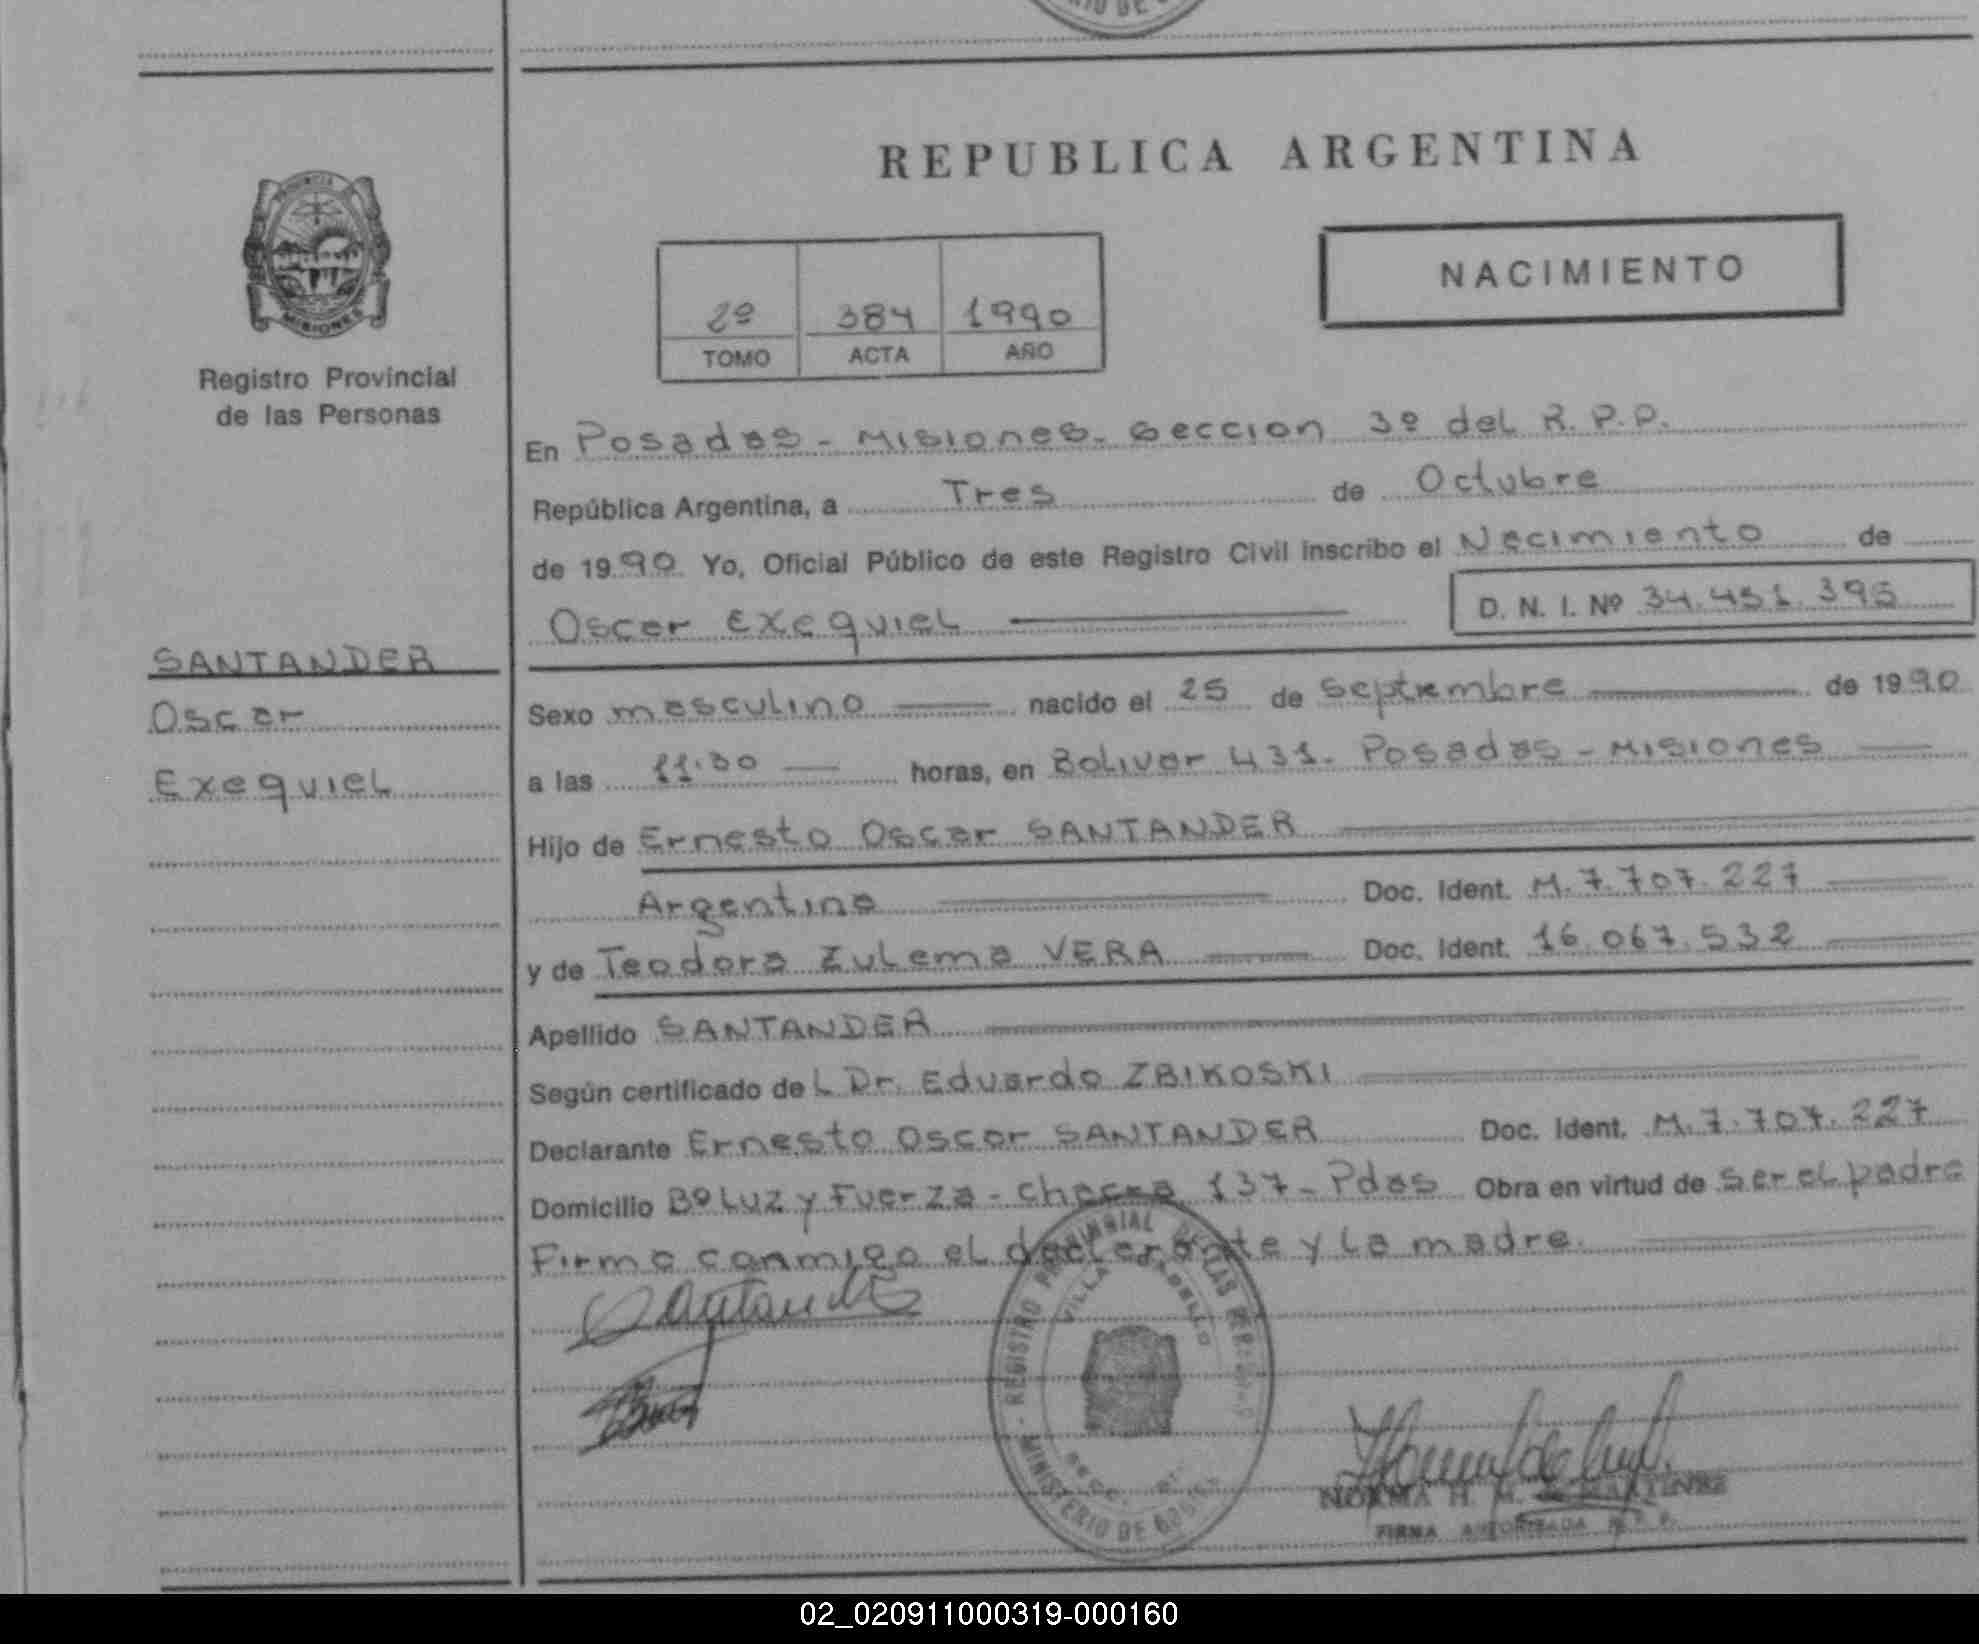 RIO DE
REPUBLICA ARGENTINA
PROVINCIA
MISIONES
Registro Provincial
de las Personas
NACIMIENTO
2º 384 1990
TOMO ACTA AÑO
En Posadas - Misiones - Seccion 3º del R.P.P.
República Argentina, a Tres de Octubre
de 1990 Yo, Oficial Público de este Registro Civil inscribo el Nacimiento de
Oscar Exequiel D. N. I. Nº 34.451.395
SANTANDER
Oscar
Exequiel
Sexo masculino nacido el 25 de Septiembre de 1990
a las 11:30 horas, en Bolivar 431. Posadas - Misiones
Hijo de Ernesto Oscar SANTANDER
Argentina Doc. Ident. M.7.707.227
y de Teodora Zulema VERA Doc. Ident. 16.067.532
Apellido SANTANDER
Según certificado del Dr. Eduardo ZBIKOSKI
Declarante Ernesto Oscar SANTANDER Doc. Ident. M.7.707.227
Domicilio Bº Luz y Fuerza - Chacra 137 - Pdas Obra en virtud de ser el padre
Firma conmigo el declarante y la madre.
REGISTRO PROVINCIAL DE LAS PERSONAS
VILLA
MINISTERIO DE GOBIERNO
NORMA H. M. de MARTINEZ
FIRMA AUTORIZADA R. P. P.
02_020911000319-000160